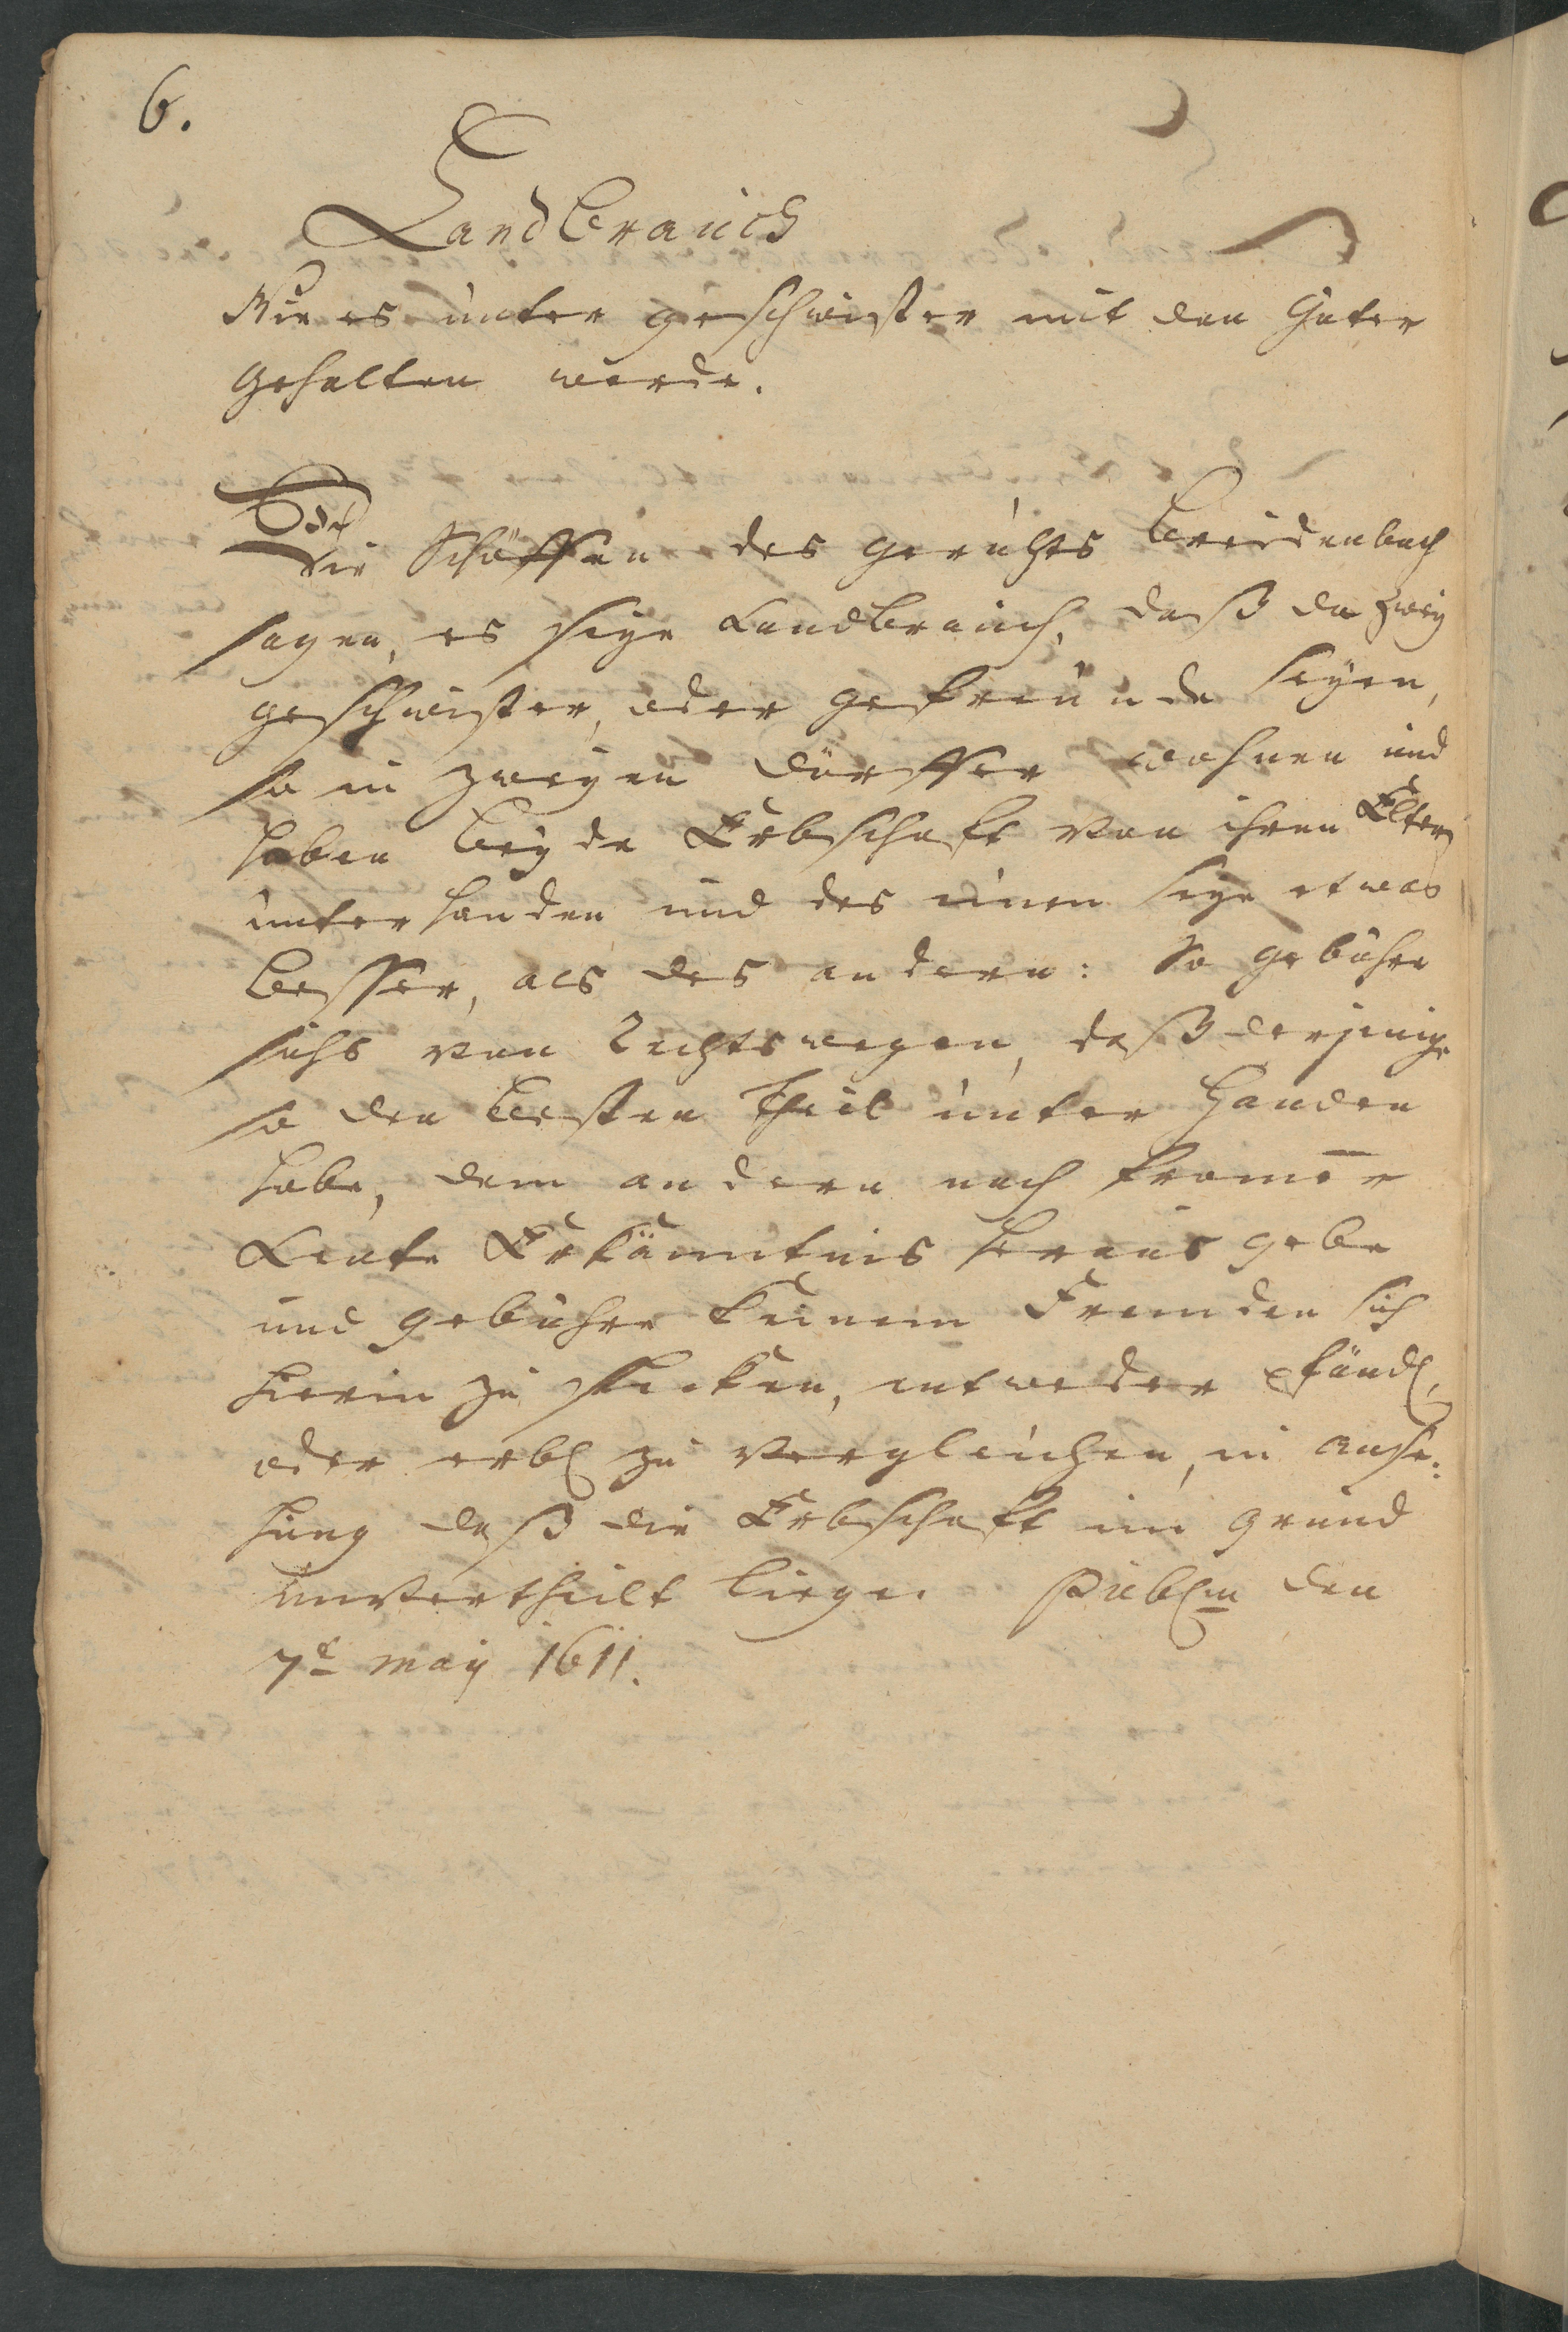 6.
Landbrauch
Wie es unter geschwister mit den Güter
gehalten werde.
Die Schöffen des gerichts Breidenbach
sagen, es seye Landbrauch, daß da zwey
geschwister, oder gefreunde seyen,
so in zweyen dörffer wohnen und
haben beyde Erbschafft von ihren Eltern
unterhanden und des einen seye etwas
besser, als des andern: So gebühre
sichs von Rechtswegen, daß derjenige
so den besten Theil unter Handen
habe, dem andern nach from̅er
Leute Erkänntnis heraus gebe
und gebühre keinem Fremden sich
hierin zu stecken, entweder pfändl.
oder erbl zu vergleichen, in anse:
hung daß die Erbschafft im grund
unvertheilt liege. Publm den
7t May 1611.